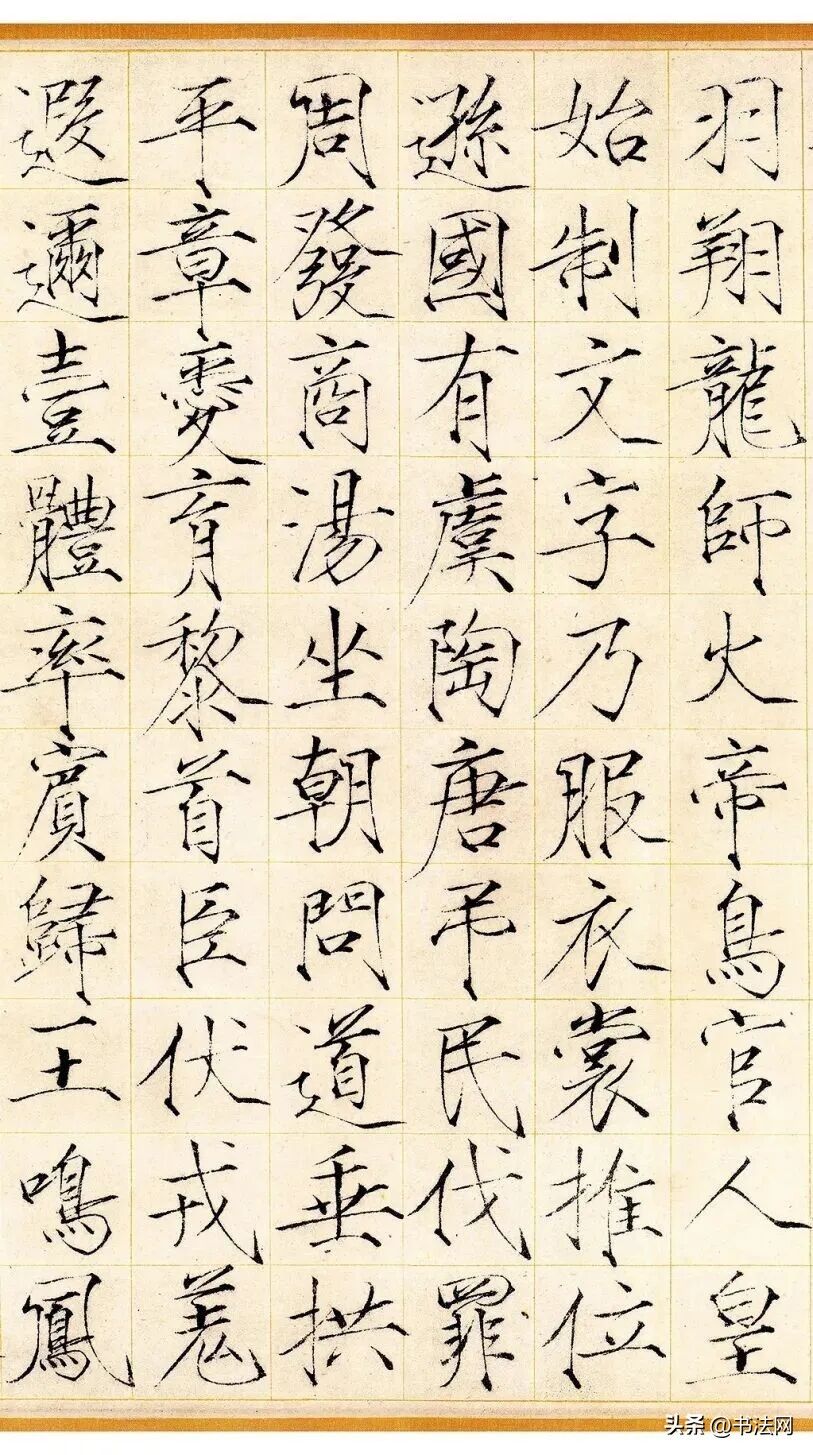 羽翔龍師火帝鳥官人皇
始制文字乃服衣裳推位
遜國有虞陶唐弔民伐罪
周發商湯坐朝問道垂拱
平章愛育黎首臣伏戎羌
遐邇壹體率賓歸王鳴鳳
头条 @书法网